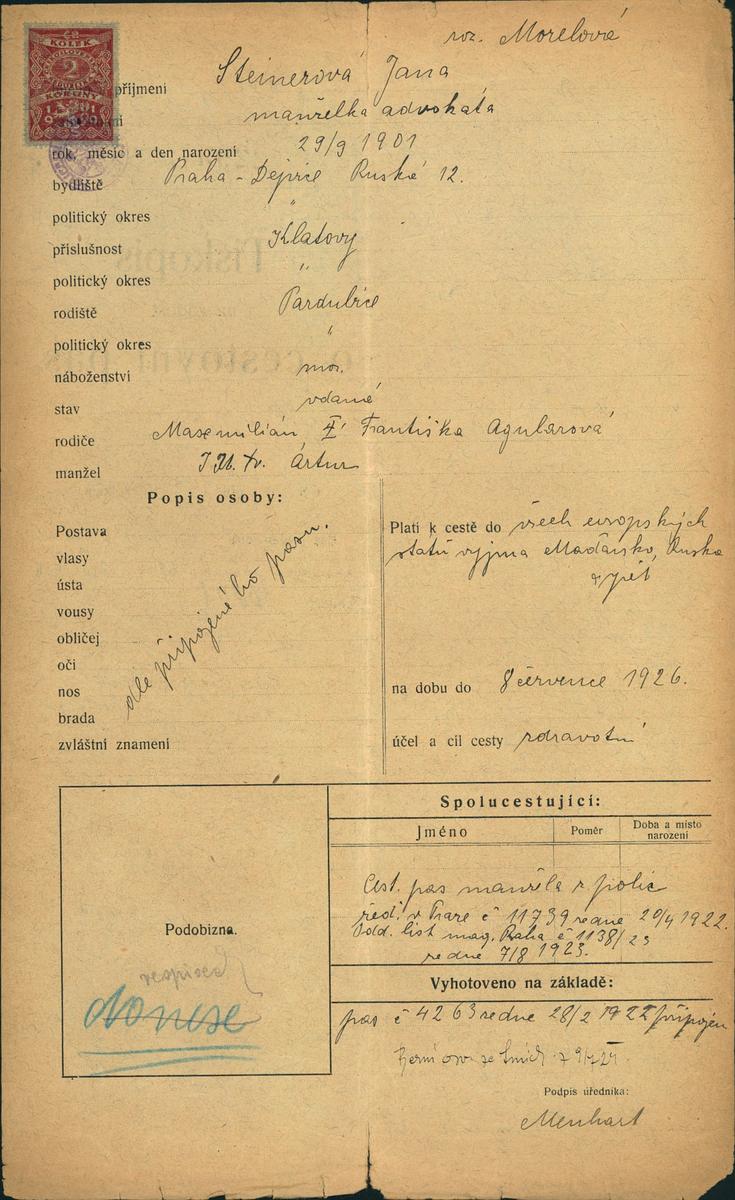 roz. Morelová
KOLEK
2
KORUNY
1919
příjmení Steinerová Jana
manželka advokáta
rok, měsíc a den narození 29/9 1901
bydliště Praha - Dejvice Ruská 12.
politický okres "
příslušnost Klatovy
politický okres "
rodiště Pardubice
politický okres "
náboženství
stav vdaná
rodiče Maxmilián Františka Agularová
manžel Artur
Popis osoby:
Postava
vlasy
ústa
vousy
obličej
oči
nos
brada
zvláštní znamení
dle připojeného pasu.
Platí k cestě do všech evropských
států vyjma Maďarsko, Ruska
a zpět
na dobu do 8 července 1926.
účel a cíl cesty zdravotní
Podobizna.
donese
Spolucestující:
Jméno Poměr Doba a místo narození
Cest. pas manžela z polic
řed. v Praze č 11739 ze dne 20/4 1922.
Odd. list mag. Praha č 1138/23
ze dne 7/8 1923.
Vyhotoveno na základě:
pas č 4263 ze dne 28/2 1922 připojen
Podpis úředníka:
Menhart